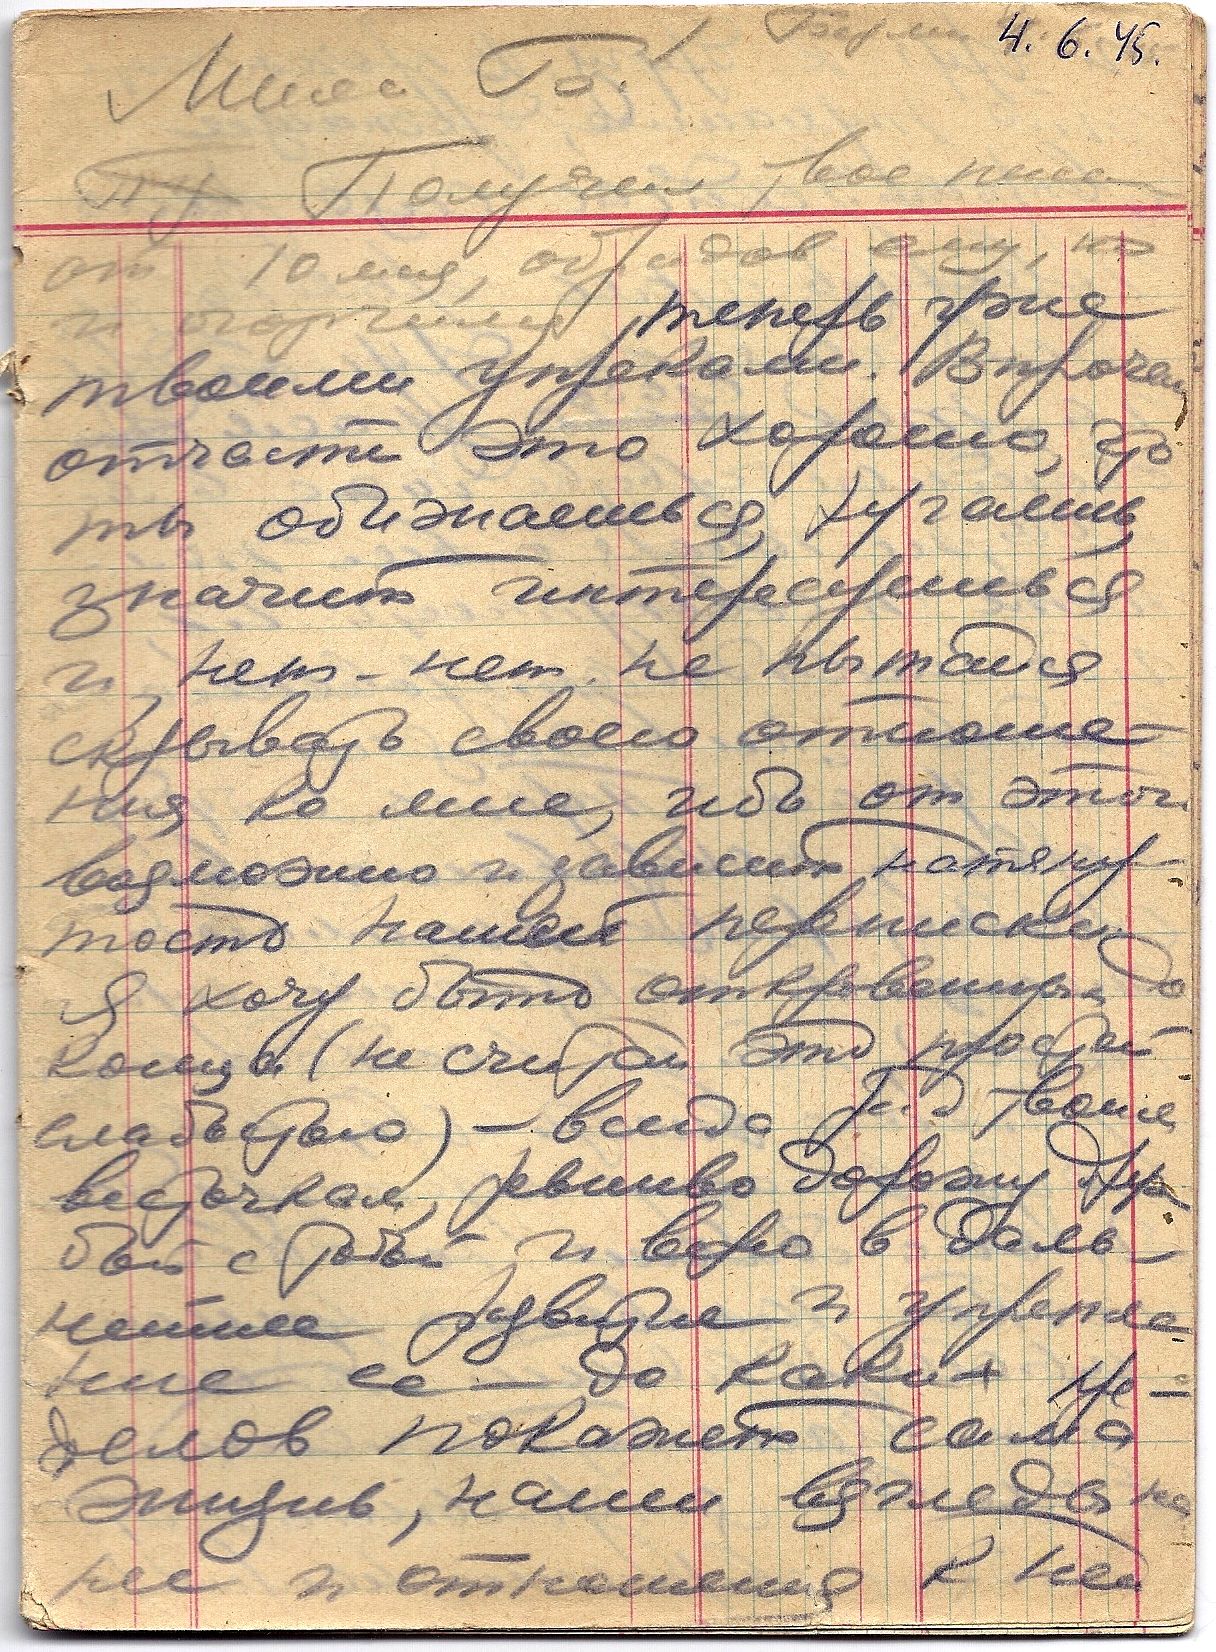 4. 6. 45.
Милая Б.!
Получил твое письмо
от 10 мая, обрадовался ему, но
и огорчился теперь уже
твоими упреками. Впрочем
отчасти это хорошо, что
ты обижаешься, ругаешь,
значит интересуешься
и нет-нет. Не пытайся
скрывать своего отноше-
ния ко мне, ибо от этого
возможно и зависит натяну-
тость нашей переписки
Я хочу быть откровенным до
конца (не считай это простой
слабостью) – всегда рад твоим
весточкам, ревниво дорожу друж
бой с тобой и верю в даль-
нейшее развитие и укрепле-
ние ее – до каких пре-
делов покажет сама
жизнь, наши взгляды на
нее и отношения к ней